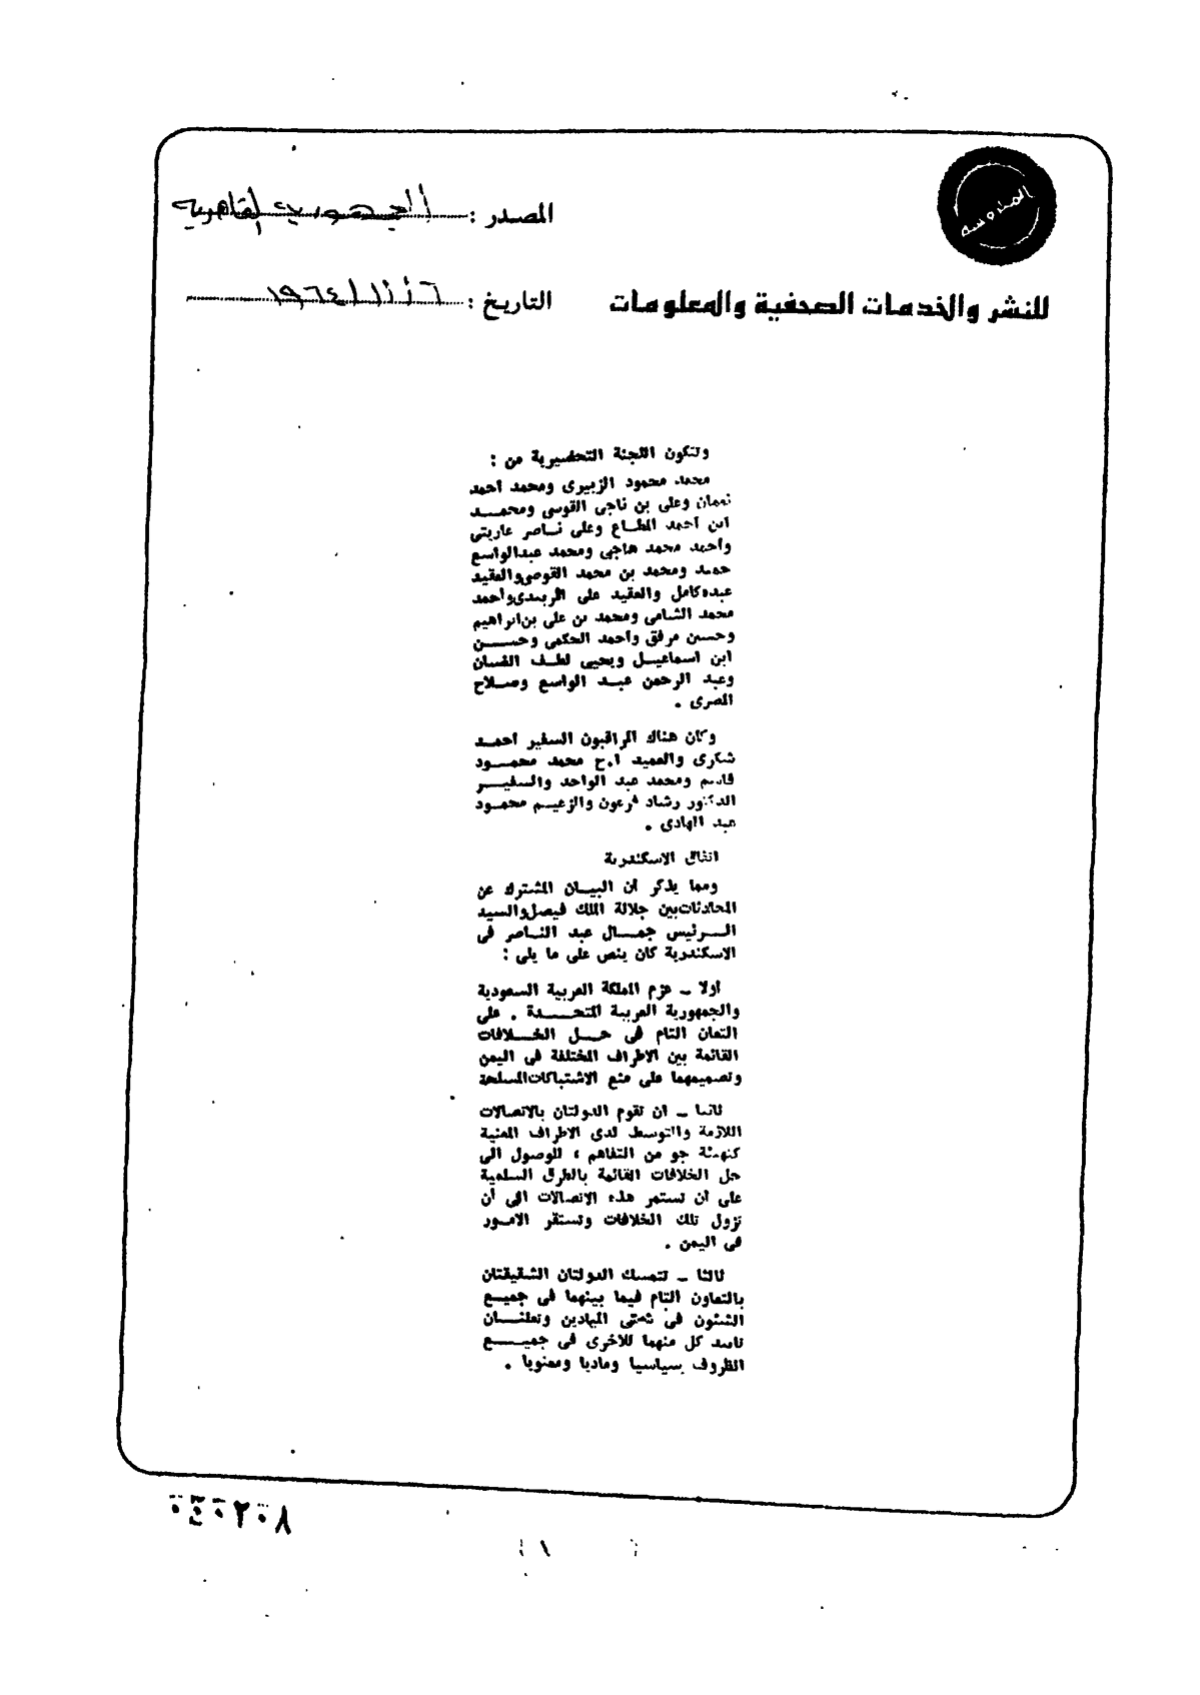 المصدر : الجمهورية القاهرية
المحروسة
للنشر والخدمات الصحفية والمعلومات
التاريخ : ٦ / ١١ / ١٩٦٤
وتتكون اللجنة التحضيرية من :
محمد محمود الزبيرى ومحمد احمد
نعمان وعلى بن ناجى القوسى ومحمــد
ابن احمد المطـاع وعلى نـاصر عاريتى
واحمد محمد هاجى ومحمد عبدالواسع
حميد ومحمد بن محمد القوصى والعقيد
عبده كامل والعقيد على الربيدى واحمد
محمد الشامى ومحمد بن على بن ابراهيم
وحسين مرفق واحمد الحكمى وحســن
ابن اسماعيـل ويحيى لطـف الفسان
وعبد الرحمن عبـد الواسع وصـلاح
المصرى .
وكان هناك المراقبون السفير احمـد
شكرى والعميد ا.ح محمد محمــود
قاسم ومحمد عبد الواحد والسفيـر
الدكتور رشاد فرعون والزعيـم محمـود
عبد الهادى .
اتفاق الاسكندرية
ومما يذكر ان البيـان المشترك عن
المحادثات بين جلالة الملك فيصل والسيد
الـرئيس جمـال عبد النـاصر فى
الاسكندرية كان ينص على ما يلى :
اولا ـ عزم المملكة العربية السعودية
والجمهورية العربية المتحــدة . على
التعان التام فى حـل الخـلافات
القائمة بين الاطراف المختلفة فى اليمن
وتصميمهما على منع الاشتباكات المسلحة
ثانيا ـ ان تقوم الدولتان بالاتصالات
اللازمة والتوسط لدى الاطراف المعنية
كتهيئة جو من التفاهم ، للوصول الى
حل الخلافات القائمة بالطرق السلمية
على ان تستمر هذه الاتصالات الى ان
تزول تلك الخلافات وتستقر الامـور
فى اليمن .
ثالثا ـ تتمسك الدولتان الشقيقتان
بالتعاون التام فيما بينهما فى جميـع
الشئون فى شتى الميادين وتعلنــان
تاييد كل منهما للاخرى فى جميــع
الظروف سياسيا وماديا ومعنويا .